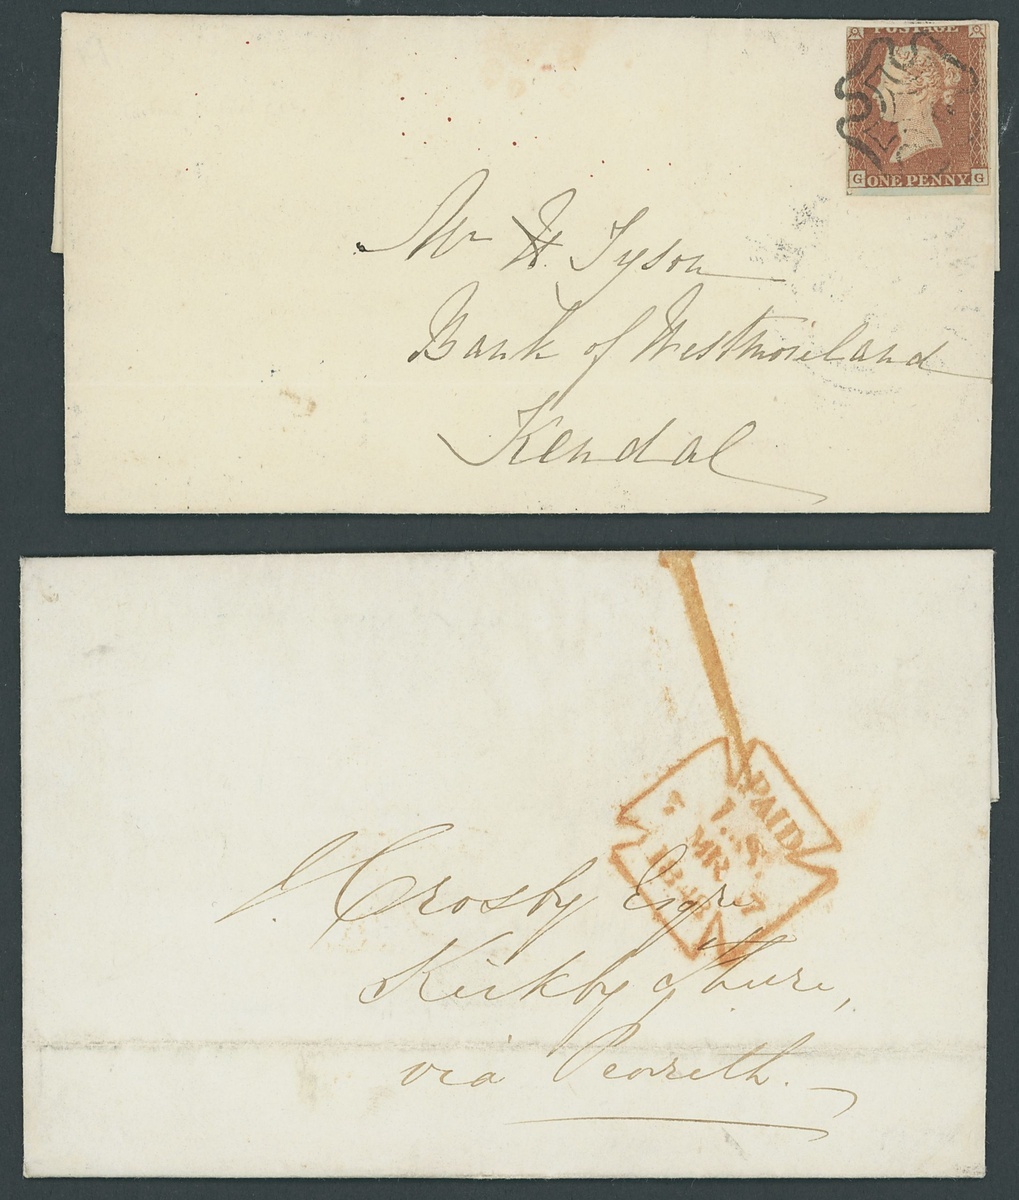 POSTAGE
G ONE PENNY G
Mr H. Tyson
Bank of Westmoreland
Kendal
PAID
MR 7
J Crosby Esqre
Kirkby Thure,
via Penrith.